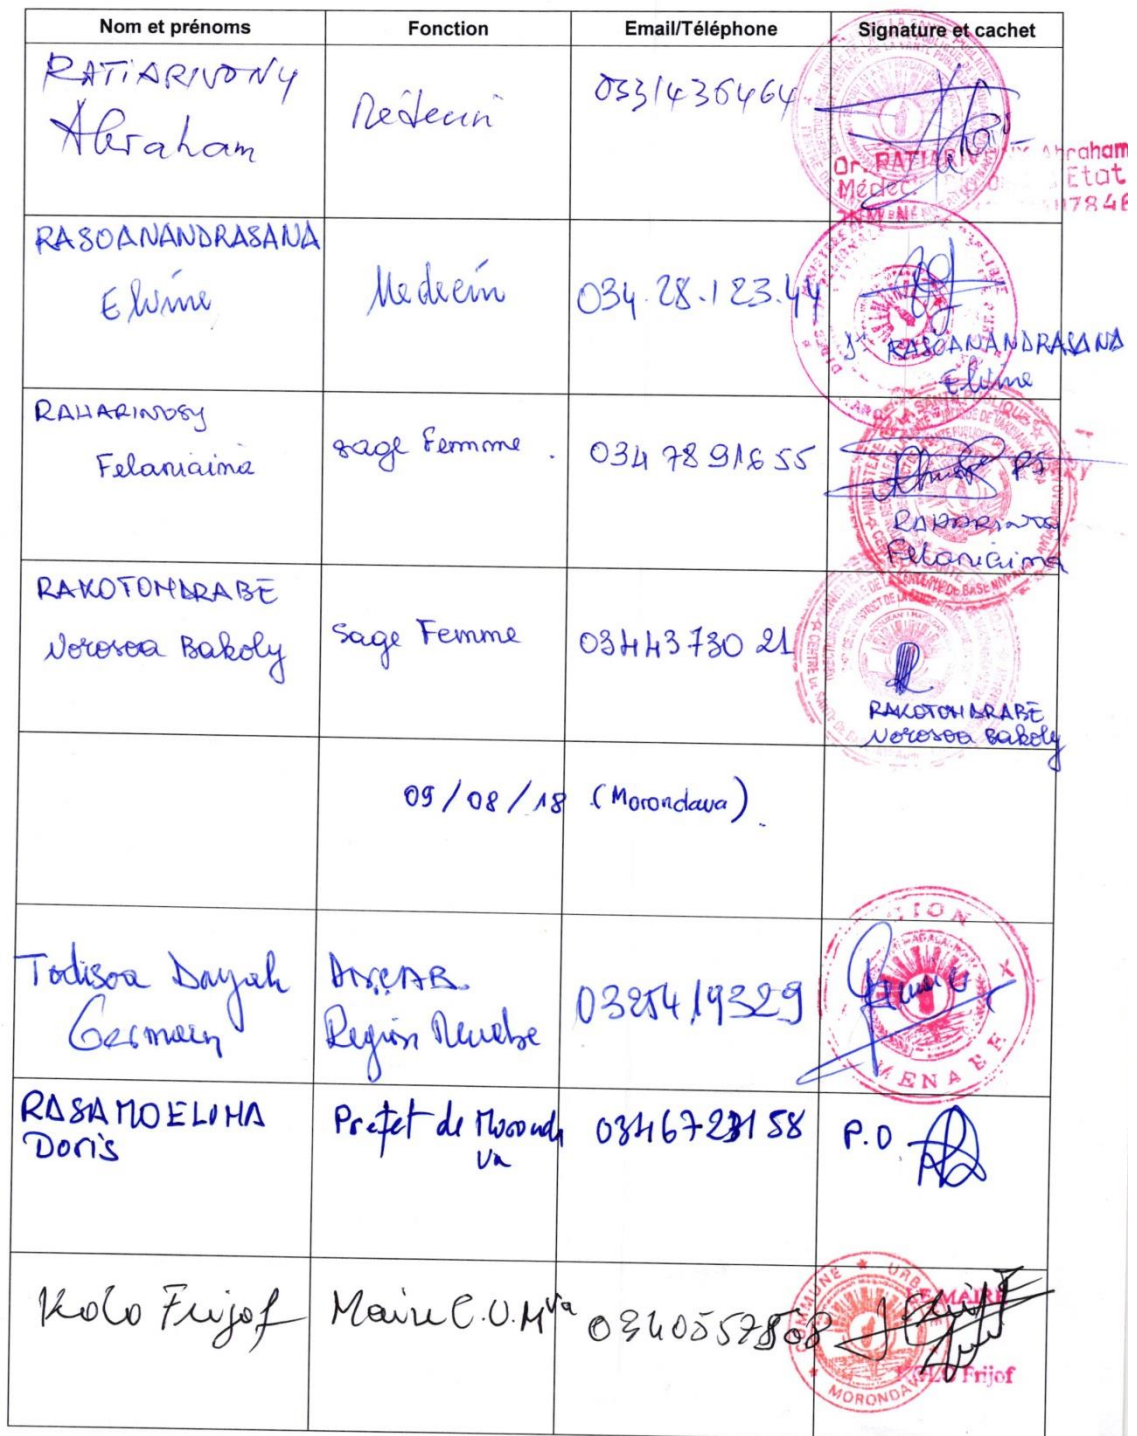 Nom et prénoms Fonction Email/Téléphone Signature et cachet
RATIARIVONY
Abraham
Médecin
0331436464
Dr. RATIARIV Abraham
Médec Etat
RASOANANDRASANA
Elvine
Medecin
034.28.123.44
RASOANANDRASANA
Elvine
RAHARINOSY
Felaniaina
sage Femme .
034 78 916 55
RAHARINOSY
Felaniaina
RAKOTONDRABE
Norosoa Bakoly
Sage Femme
03443730 21
RAKOTONDRABE
Norosoa Bakoly
09/08/18 (Morondava)
Todisoa Dayah
Germain
Région Menabe
0325419329
REGION
MENABE
RASAMOELINA
Doris
Prefet de Moronda
va
P.O
Kolo Frijof
Maire C.U.Mva
0340557808
COMMUNE URBAINE
MORONDAVA
LE MAIRE
KOLO Frijof